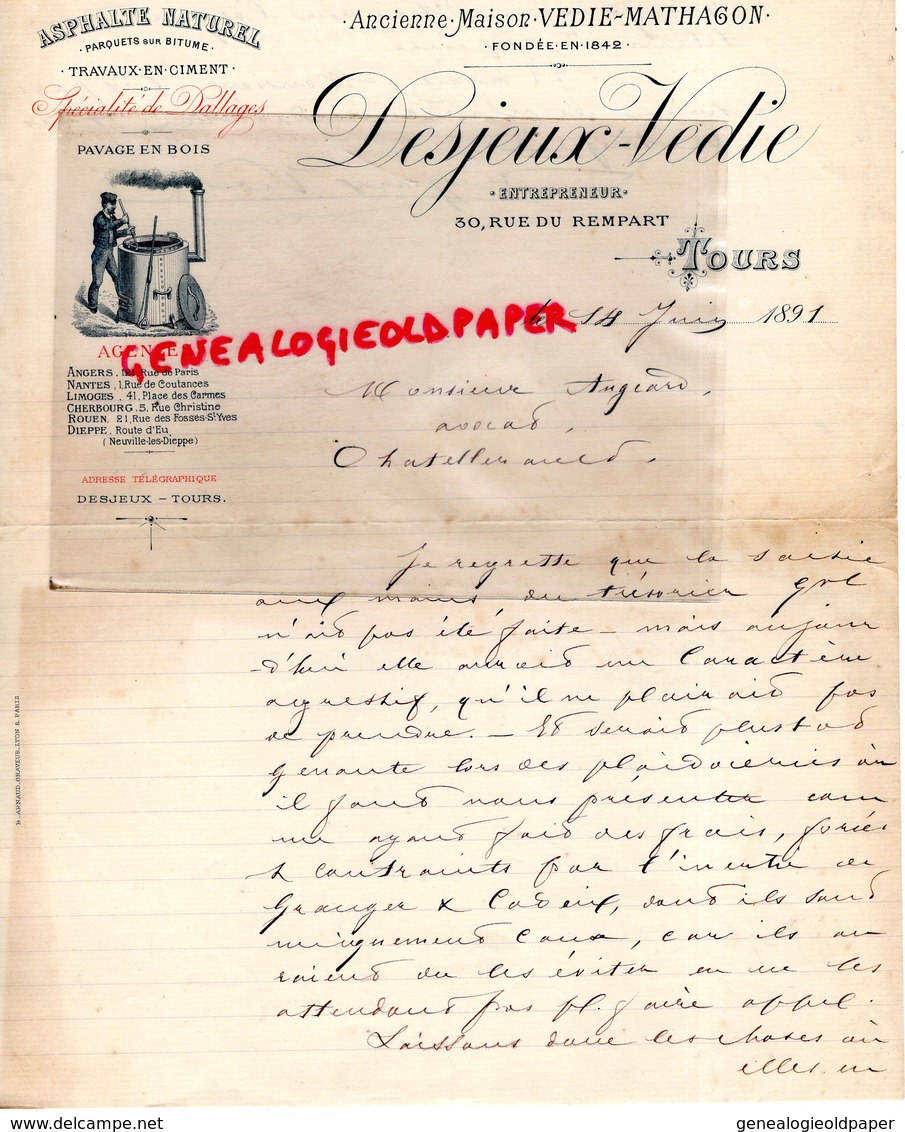 ASPHALTE NATUREL
· PARQUETS SUR BITUME ·
· TRAVAUX · EN · CIMENT ·
Spécialité de Dallages
PAVAGE EN BOIS
AGENCE
ANGERS, 121, Rue de Paris
NANTES, 1, Rue de Coutances
LIMOGES, 41, Place des Carmes
CHERBOURG, 5, Rue Christine
ROUEN, 21, Rue des Fosses-St-Yves
DIEPPE, Route d'Eu
(Neuville-les-Dieppe)
ADRESSE TÉLÉGRAPHIQUE
DESJEUX – TOURS.
· Ancienne · Maison · VEDIE-MATHAGON ·
· FONDÉE · EN · 1842 ·
Desjeux-Vedie
· ENTREPRENEUR ·
30, RUE DU REMPART
TOURS
le 14 Juin 1891
GENEALOGIEOLDPAPER
Monsieur Angeard,
avocat,
Chatellerault.
Je regrette que la saisie
aux mains du trésorier gal
n'ait pas été faite – mais aujour
d'hui elle aurait un caractère
agressif, qu'il ne plairait pas
de prendre. – Et serait plustot
genante lors des plaidoieries où
il faut nous présenter com
me ayant fait des frais, forcés
& contraints par l'inertie de
Granger & Cadeix, dont ils sont
uniquement cause, car ils au
raient du les éviter en ne les
attendant pas pl. faire appel.
Laissons donc les choses où
elles en
B. ARNAUD, GRAVEUR, LYON & PARIS
delcampe.net
genealogieoldpaper